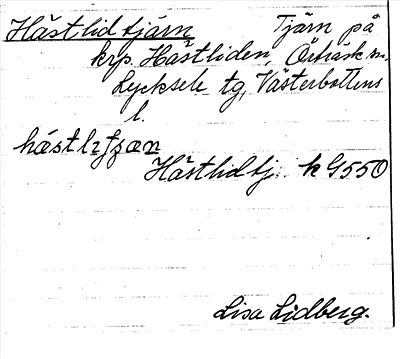 Hästlidtjärn Tjärn på
krp. Hästliden, Örträsk sn,
Lycksele tg, Västerbottens
l.
hástlıtʃæn
Hästlidtj. k G550
Lisa Lidberg.